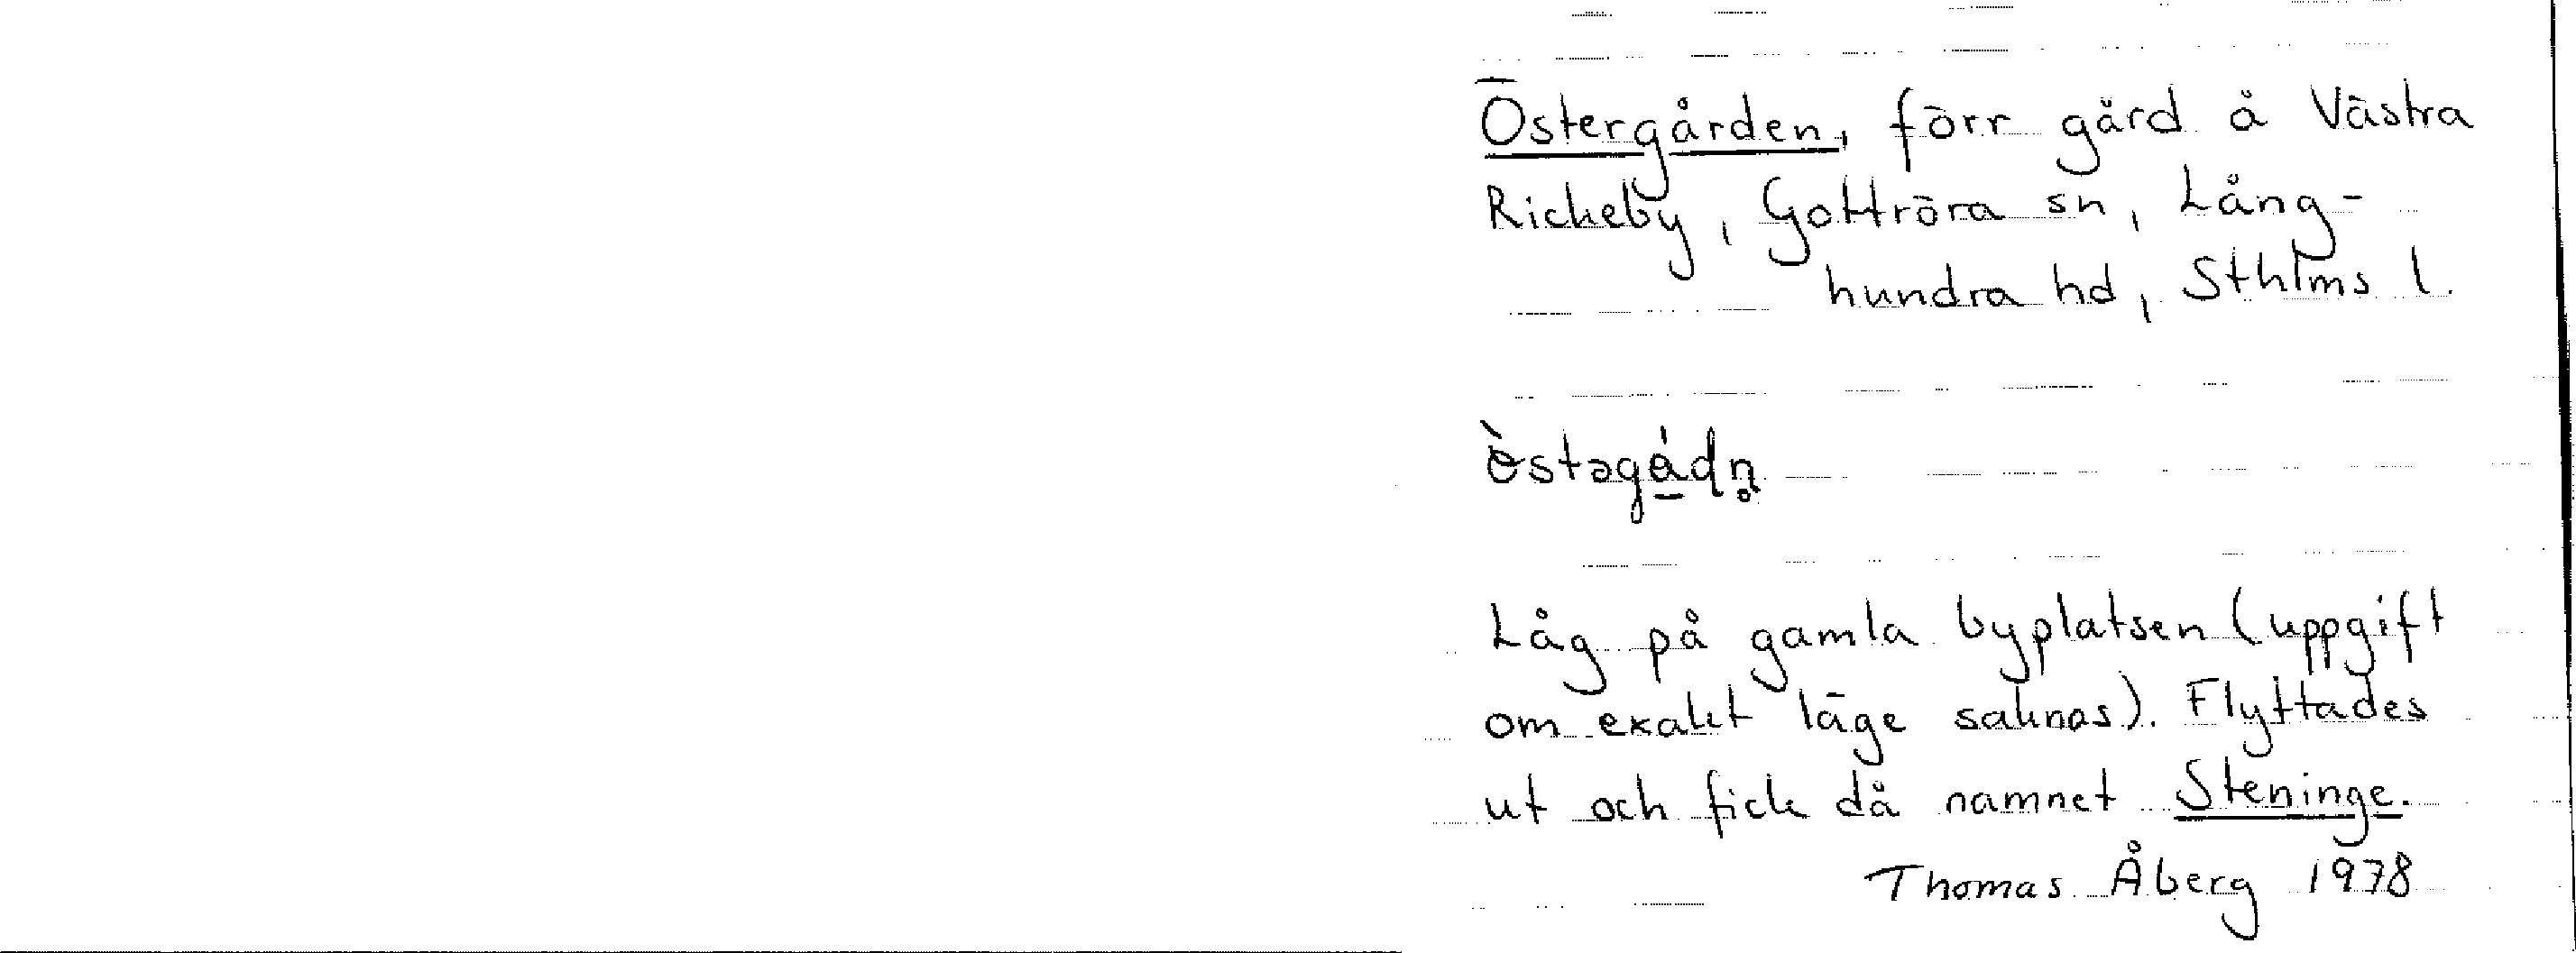 Östergården, förr gård å Västra
Rickeby, Gottröra sn, Lång-
hundra hd, Sthlms l.
Låg på gamla byplatsen (uppgift
om exakt läge saknas). Flyttades
ut och fick då namnet Steninge.
Thomas Åberg 1978